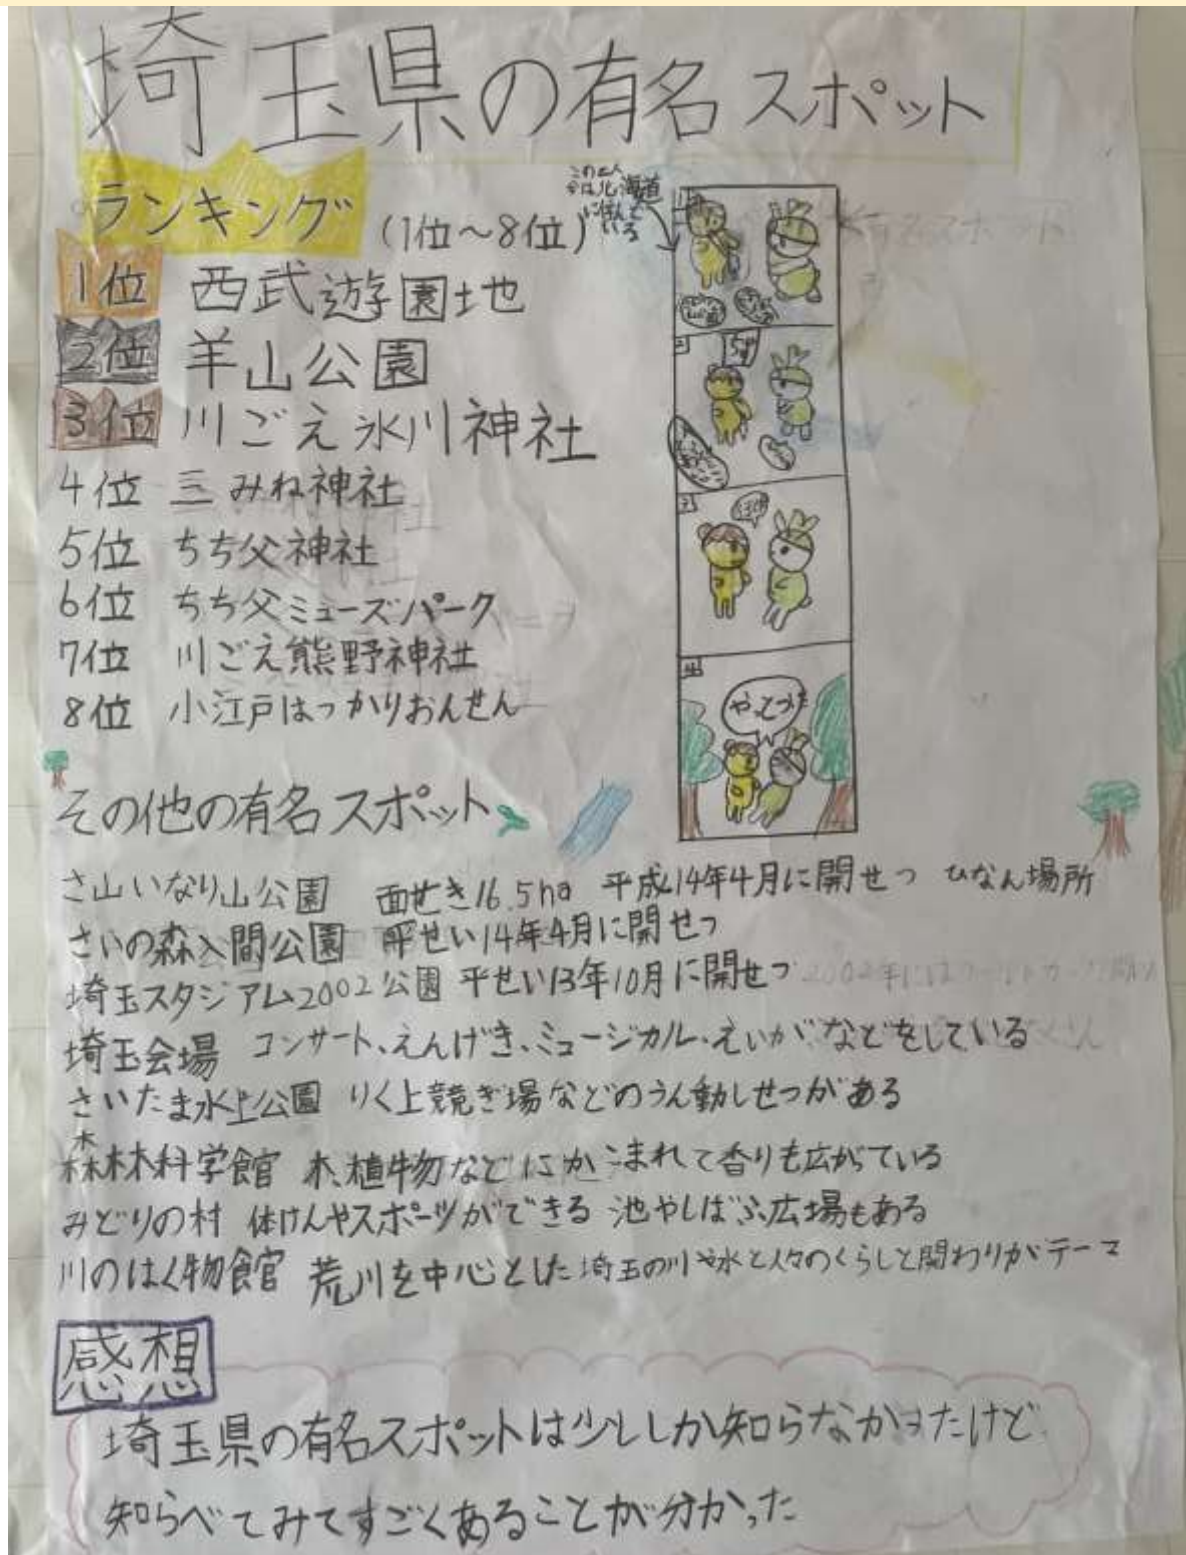 埼玉県の有名スポット
ランキング (1位～8位)
この二人
今は北海道
に住んで
いる
1位 西武遊園地
2位 羊山公園
3位 川ごえ氷川神社
4位 三みね神社
5位 ちち父神社
6位 ちち父ミューズパーク
7位 川ごえ熊野神社
8位 小江戸はつかりおんせん
やってっ
その他の有名スポット
さ山いなり山公園 面せき16.5ha 平成14年4月に開せつ ひなん場所
さいの森入間公園 平せい14年4月に開せつ
埼玉スタジアム2002公園 平せい13年10月に開せつ
埼玉会場 コンサート、えんげき、ミュージカル、えいがなどをしている
さいたま水上公園 りく上競ぎ場などのうん動しせつがある
森林科学館 木、植物などにかこまれて香りも広がている
みどりの村 体けんやスポーツができる 池やしばふ広場もある
川のはく物館 荒川を中心とした埼玉の川や水と人々のくらしと関わりがテーマ
感想
埼玉県の有名スポットは少ししか知らなかったけど
知らべてみてすごくあることが分かった